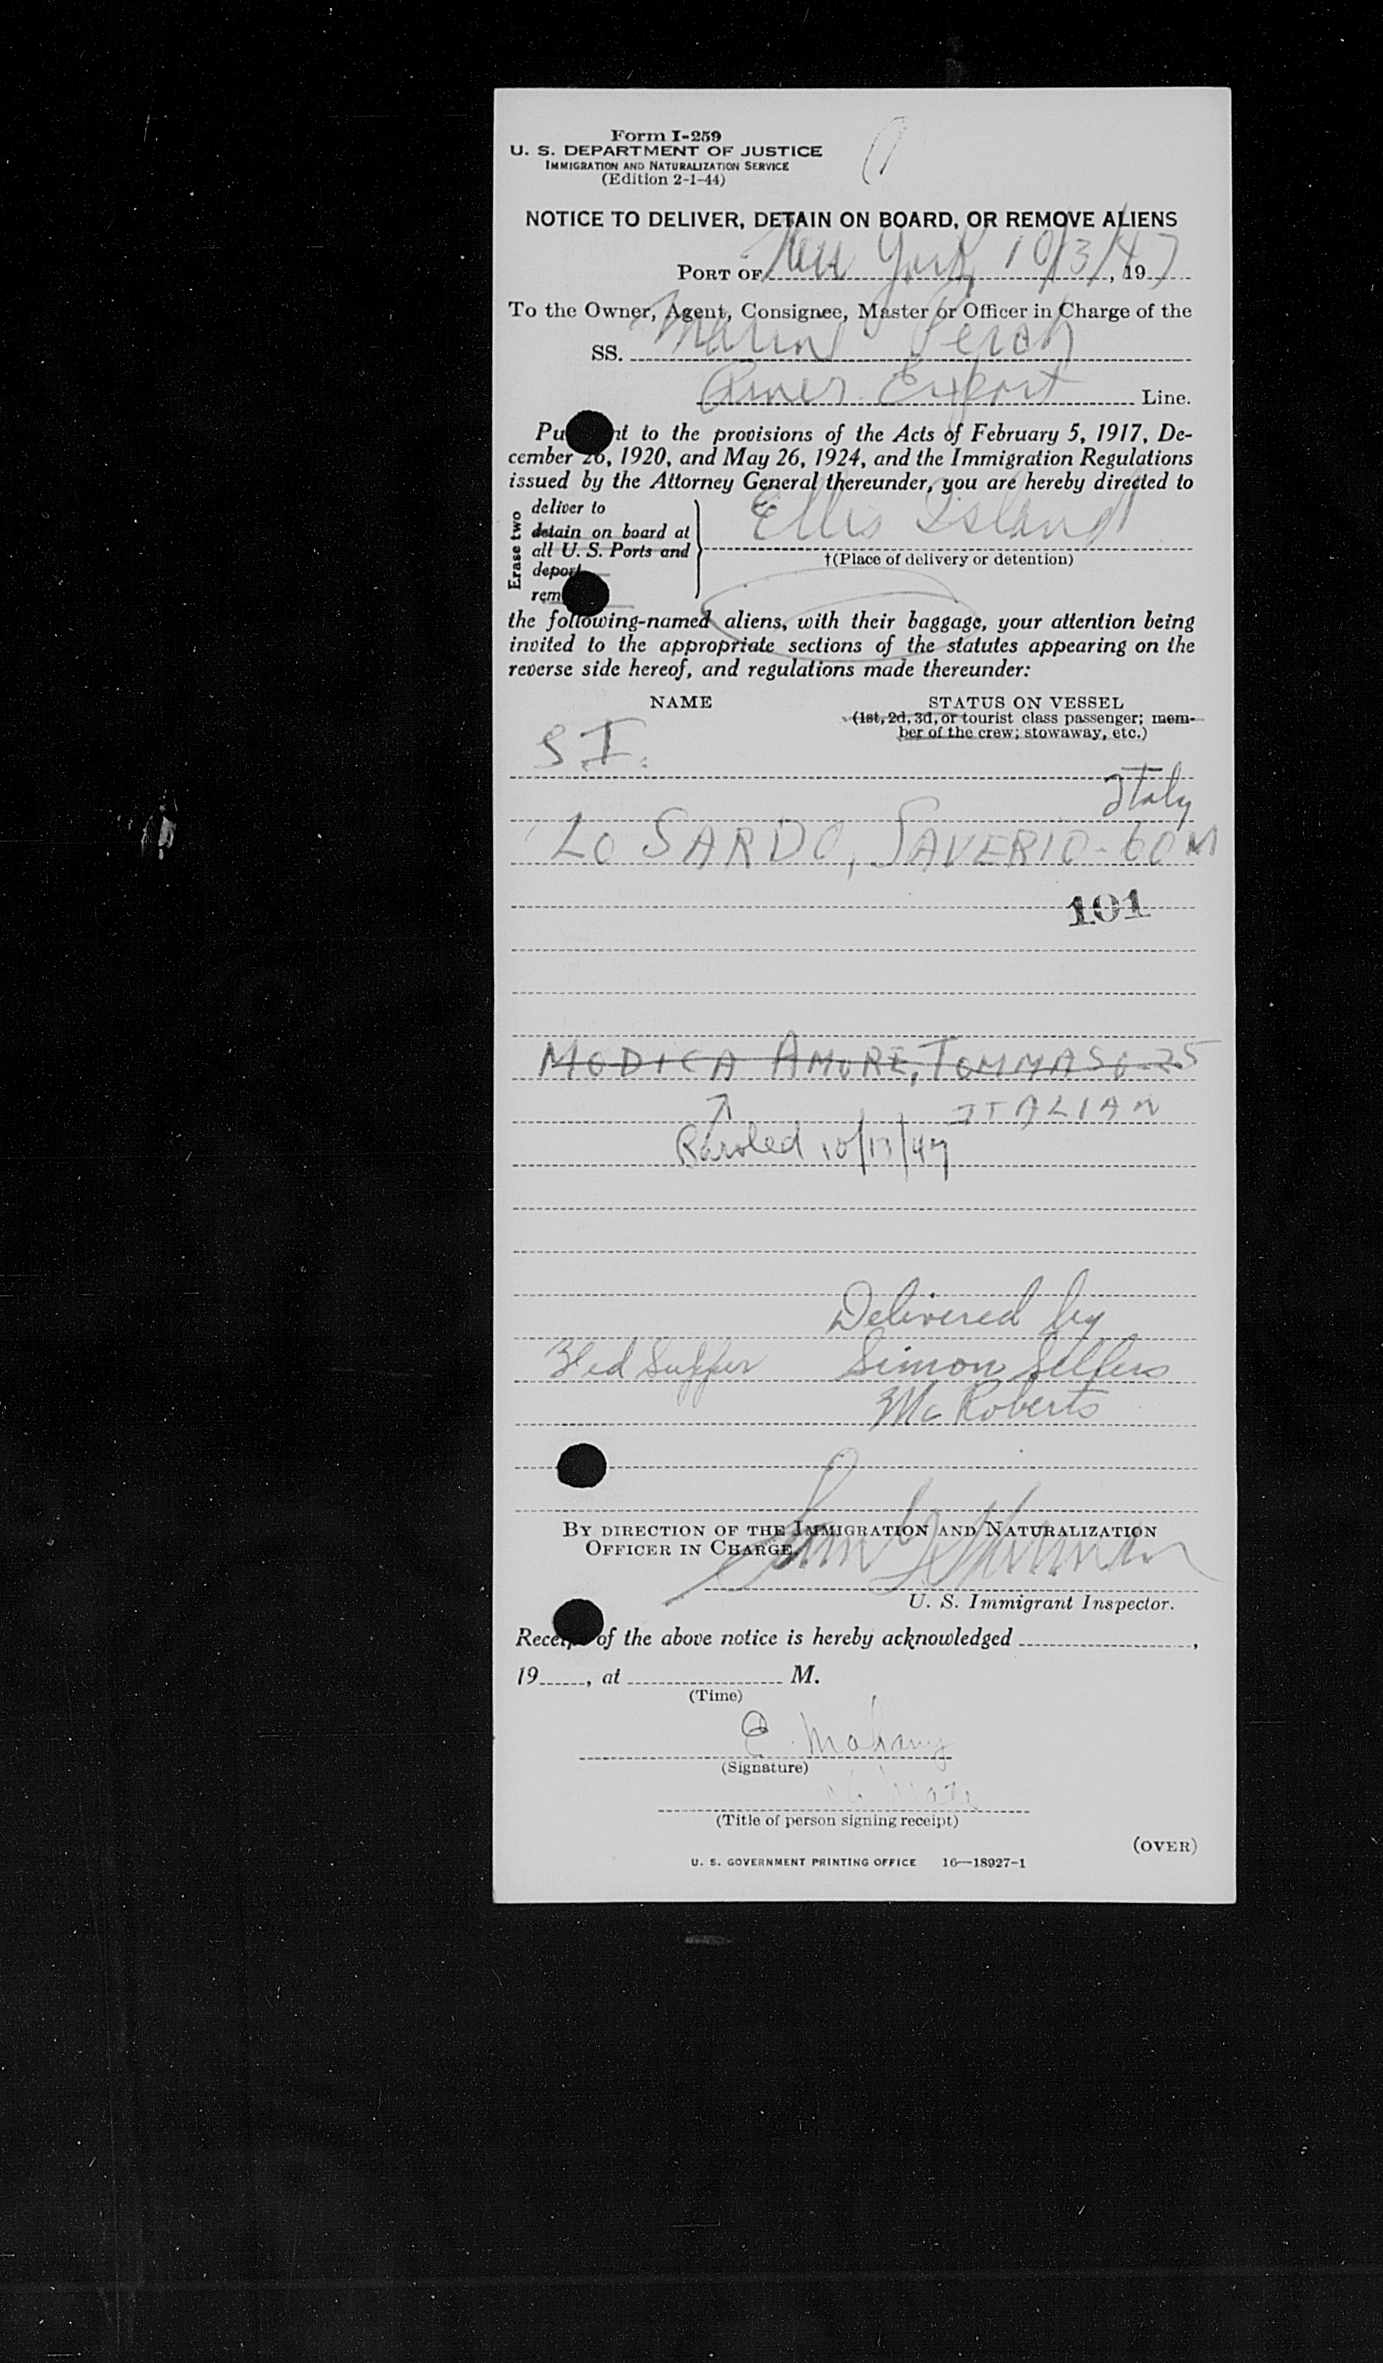 Form I-259
U. S. DEPARTMENT OF JUSTICE
IMMIGRATION AND NATURALIZATION SERVICE
(Edition 2-1-44)
NOTICE TO DELIVER, DETAIN ON BOARD, OR REMOVE ALIENS
PORT OF New York 10/3/47, 19
To the Owner, Agent, Consignee, Master or Officer in Charge of the
SS. Marine Perch
Amer. Export Line.
Pu nt to the provisions of the Acts of February 5, 1917, De-
cember 26, 1920, and May 26, 1924, and the Immigration Regulations
issued by the Attorney General thereunder, you are hereby directed to
Erase two
deliver to
detain on board at
all U. S. Ports and
deport
rem
Ellis Island
†(Place of delivery or detention)
the following-named aliens, with their baggage, your attention being
invited to the appropriate sections of the statutes appearing on the
reverse side hereof, and regulations made thereunder:
NAME
STATUS ON VESSEL
(1st, 2d, 3d, or tourist class passenger; mem-
ber of the crew; stowaway, etc.)
S I.
Italy
LO SARDO, SAVERIO - 60 M
101
MODICA AMORE, TOMMASO - 25
ITALIAN
Paroled 10/13/47
Delivered by
Simon Sellers
Mc Roberts
BY DIRECTION OF THE IMMIGRATION AND NATURALIZATION
OFFICER IN CHARGE.
U. S. Immigrant Inspector.
Receipt of the above notice is hereby acknowledged ,
19 , at M.
(Time)
E. Mahany
(Signature)
(Title of person signing receipt)
(OVER)
U. S. GOVERNMENT PRINTING OFFICE 16—18927-1